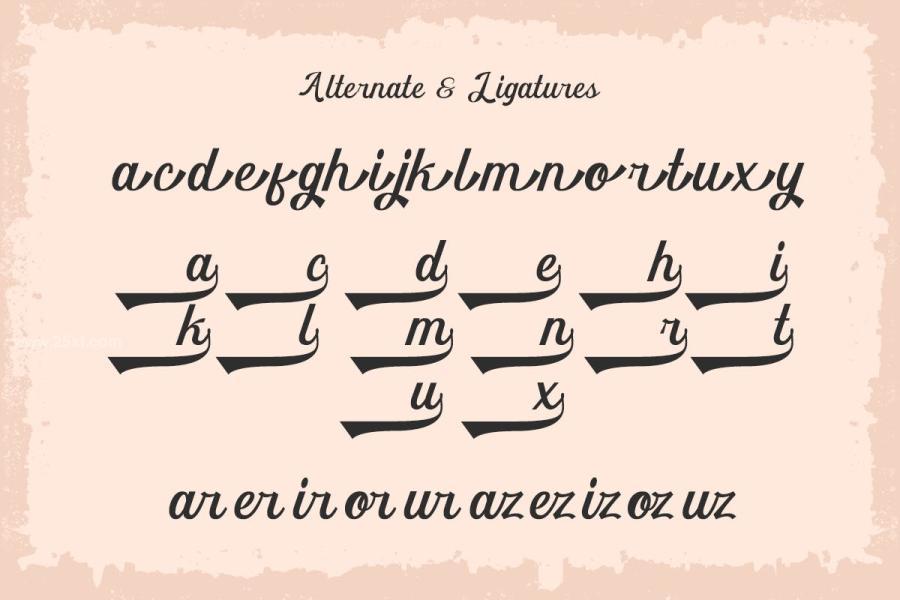 Alternate & Ligatures
acdefghijklmnortuxy
a c d e h i
k l m n r t
u x
ar er ir or ur az ez iz oz uz
www.25xt.com